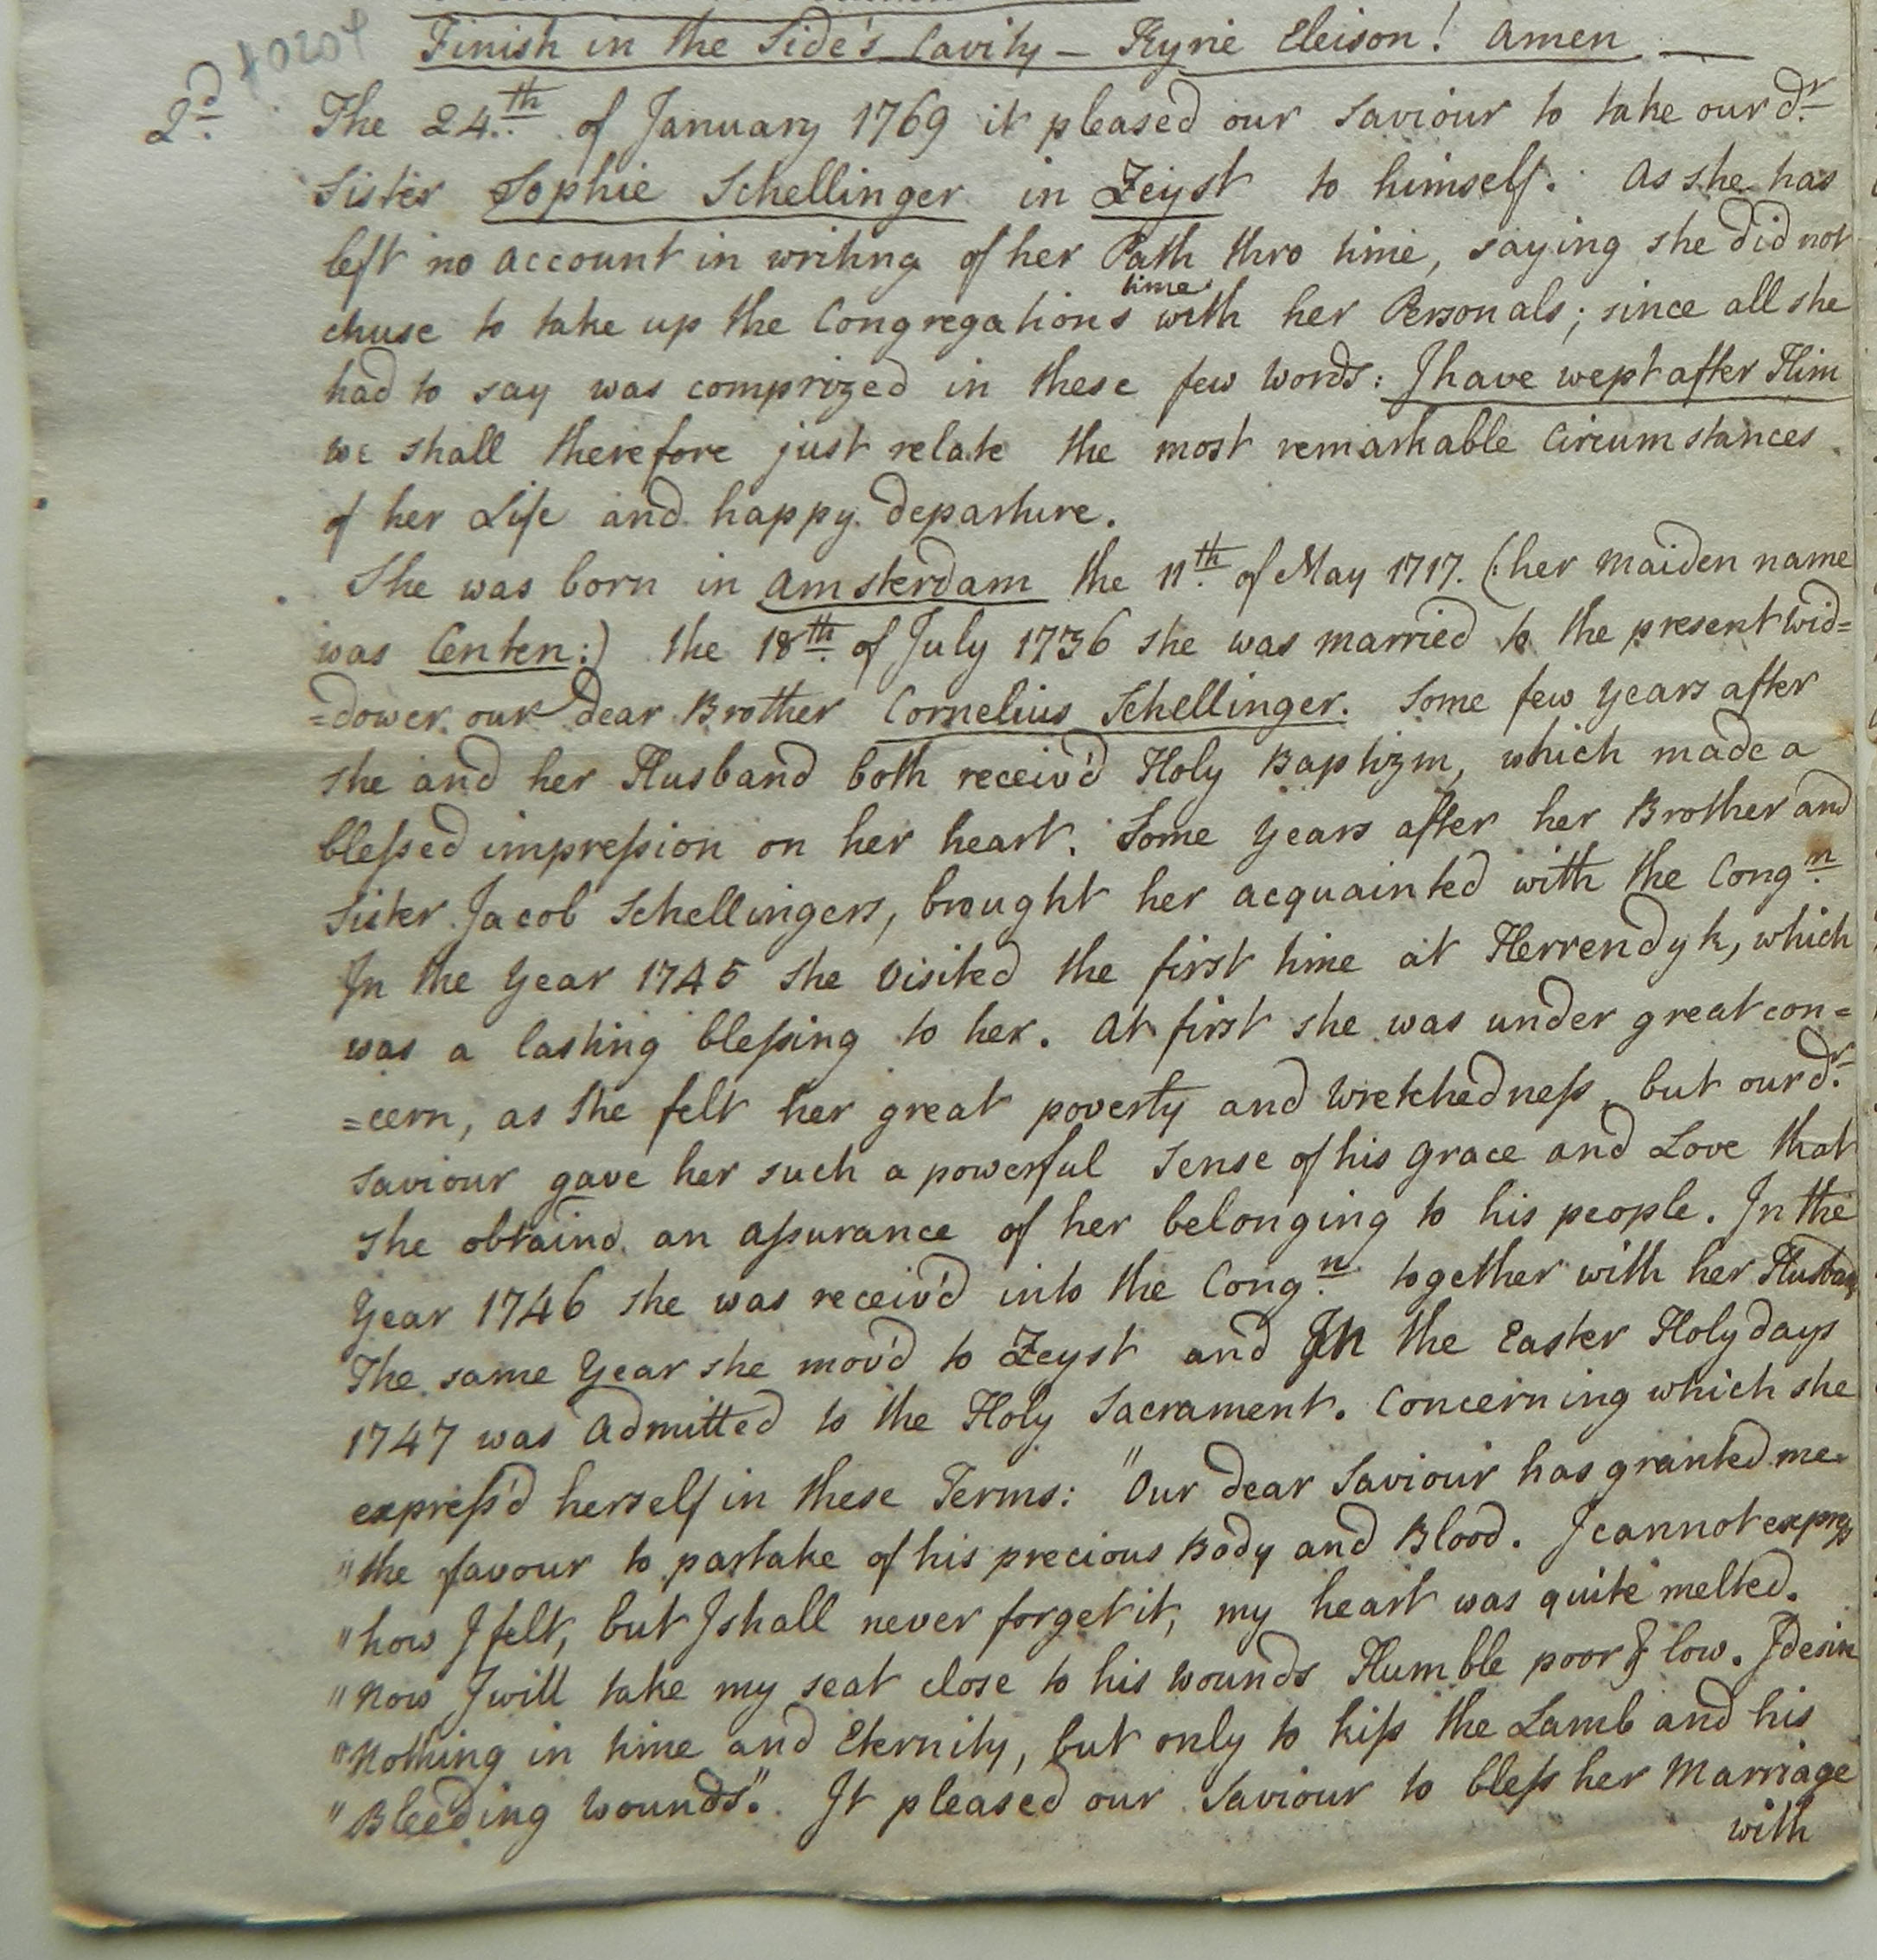 Finish in the Side's Cavity – Kyrie Eleison! Amen —
2d
The 24th of January 1769 it pleased our Saviour to take our dr
Sister Sophie Schellinger in Zeyst to himself. As she has
left no account in writing of her Path thro time, saying she did not
time
chuse to take up the Congregations with her Personals; since all she
had to say was comprized in these few words: I have wept after Him
we shall therefore just relate the most remarkable Circumstances
of her Life and happy departure.
She was born in Amsterdam the 11th of May 1717. (:her maiden name
was Centen:) the 18th of July 1736 she was married to the present Wid=
=dower our dear Brother Cornelius Schellinger. Some few years after
she and her Husband both receiv'd Holy Baptizm, which made a
blessed impression on her heart. Some years after her Brother and
Sister Jacob Schellingers, brought her acquainted with the Congn.
In the Year 1745 she visited the first time at Herrendyk, which
was a lasting blessing to her. At first she was under great con=
=cern, as she felt her great poverty and Wretchedness, but our dr.
Saviour gave her such a powerful Sense of his Grace and Love that
she obtaind an assurance of her belonging to his people. In the
Year 1746 she was receiv'd into the Congn. together with her
The same Year she mov'd to Zeyst and In the Easter Holydays
1747 was Admitted to the Holy Sacrament. Concerning which she
express'd herself in these Terms: "Our dear Saviour has granted me
"the favour to partake of his precious Body and Blood. I cannot express
"how I felt, but I shall never forget it, my heart was quite melted.
"Now I will take my seat close to his wounds Humble poor & low. I desire
"Nothing in time and Eternity, but only to kiss the Lamb and his
"Bleeding Wounds". It pleased our Saviour to bless her Marriage
with